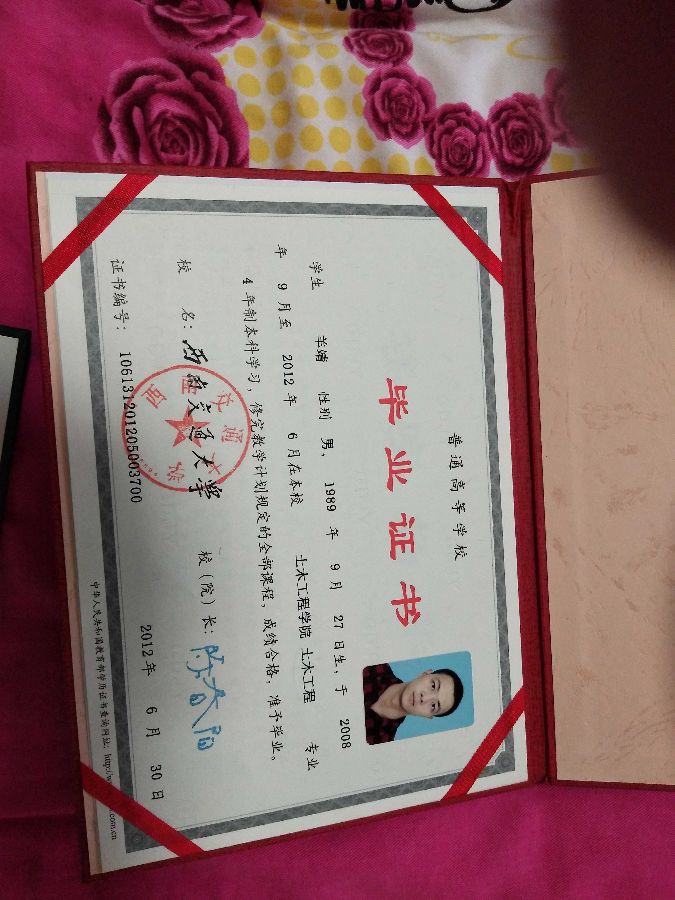 普通高等学校
毕业证书
学生 羊婧 性别 男, 1989 年 9 月 27 日生, 于 2008
年 9 月至 2012 年 6 月在本校 土木工程学院 土木工程 专业
4 年制本科学习, 修完教学计划规定的全部课程, 成绩合格, 准予毕业。
校 名: 西南交通大学 校(院)长: 陈春阳
证书编号: 106131201205003700 2012 年 6 月 30 日
中华人民共和国教育部学历证书查询网址: http://w
.com.cn